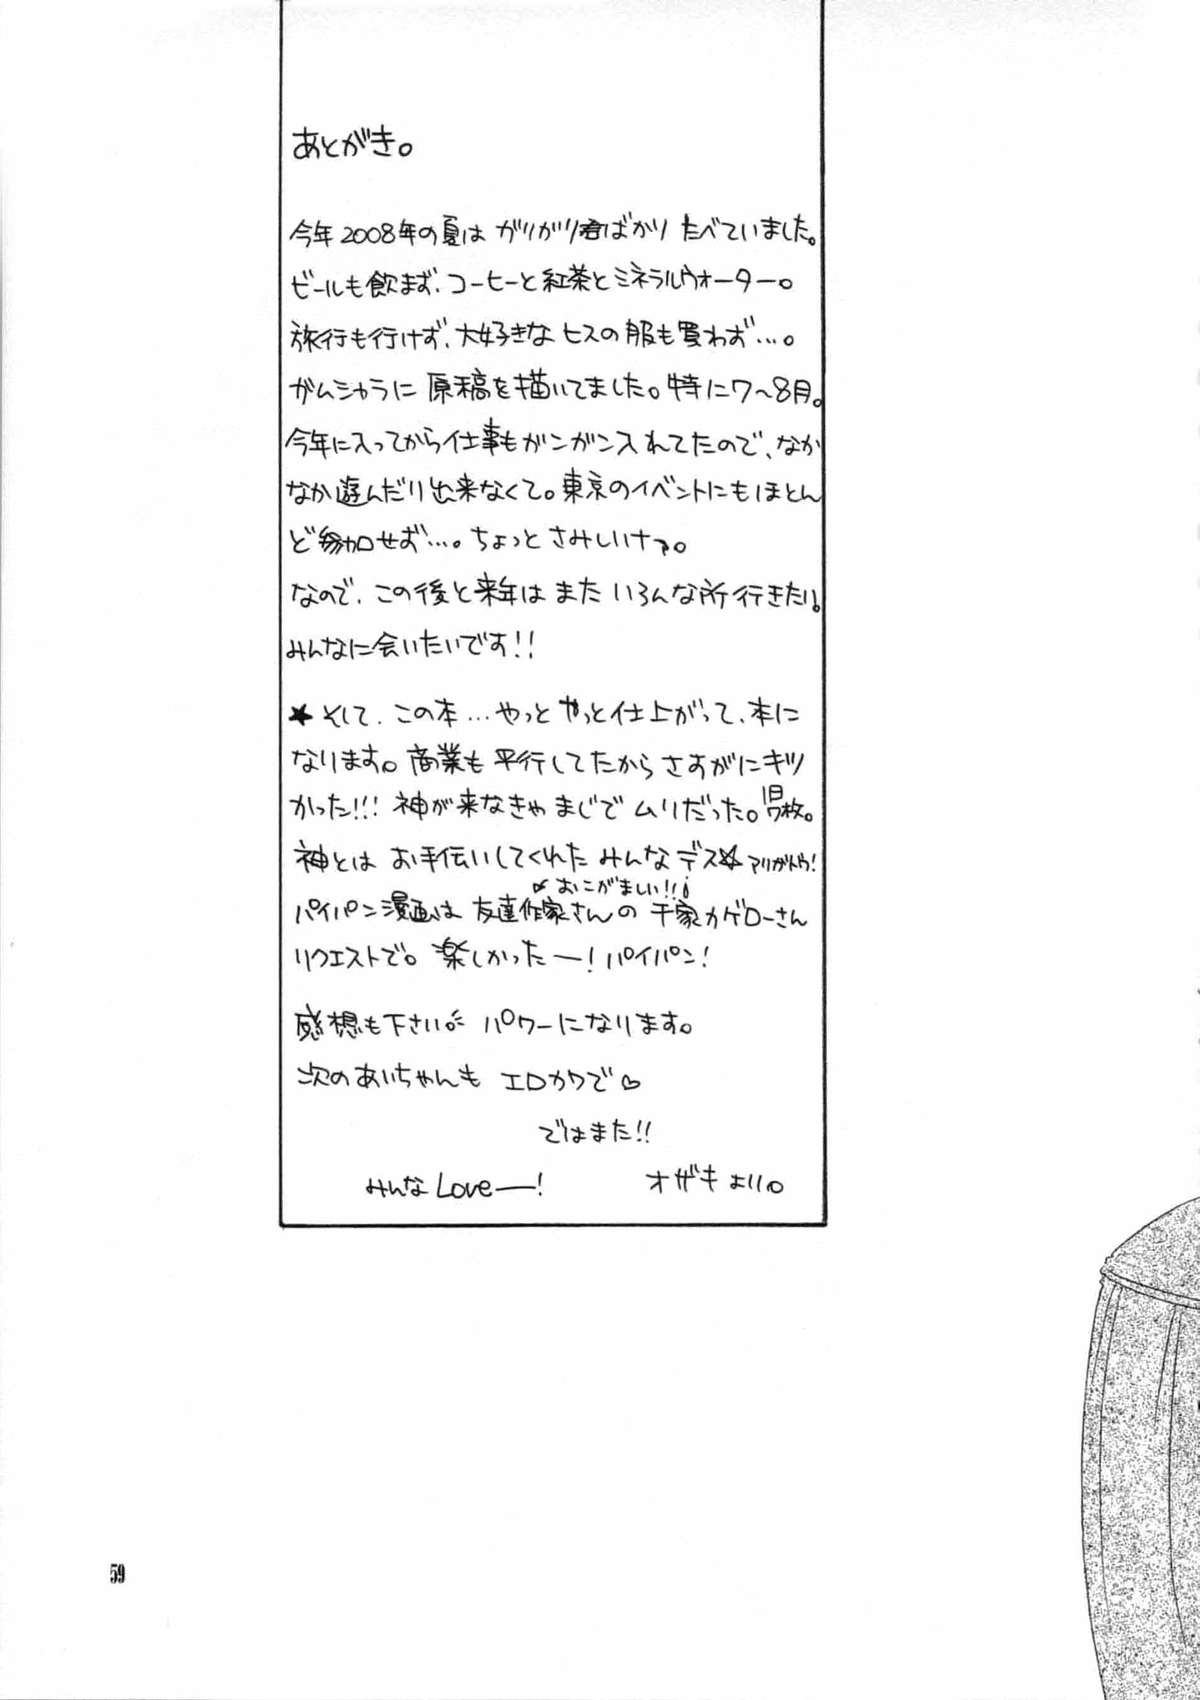 あとがき。
今年2008年の夏は ガリガリ君ばかり たべていました。
ビールも飲まず、コーヒーと紅茶とミネラルウォーター。
旅行も行けず、大好きな ヒスの服も買わず…。
ガムシャラに 原稿を描いてました。特に7〜8月。
今年に入ってから仕事もガンガン入れてたので、なか
なか遊んだり出来なくて。東京のイベントにもほとん
ど参加せず…。ちょっと さみしいナァ。
なので、この後と来年は また いろんな所行きたい。
みんなに会いたいです!!
★そして、この本…やっと やっと仕上がって、本に
なります。商業も 平行してたから さすがにキツ
かった!!! 神が来なきゃ まじで ムリだった。1日7枚。
神とは お手伝いしてくれた みんなデス★ アリガトウ!
おこがましい!!
パイパン漫画は 友達作家さんの 千家カゲローさん
リクエストで。楽しかったー! パイパン!
感想も下さい。パワーになります。
次のあいちゃんも エロカワで♡
ではまた!!
みんなLoveー! オザキより。
59